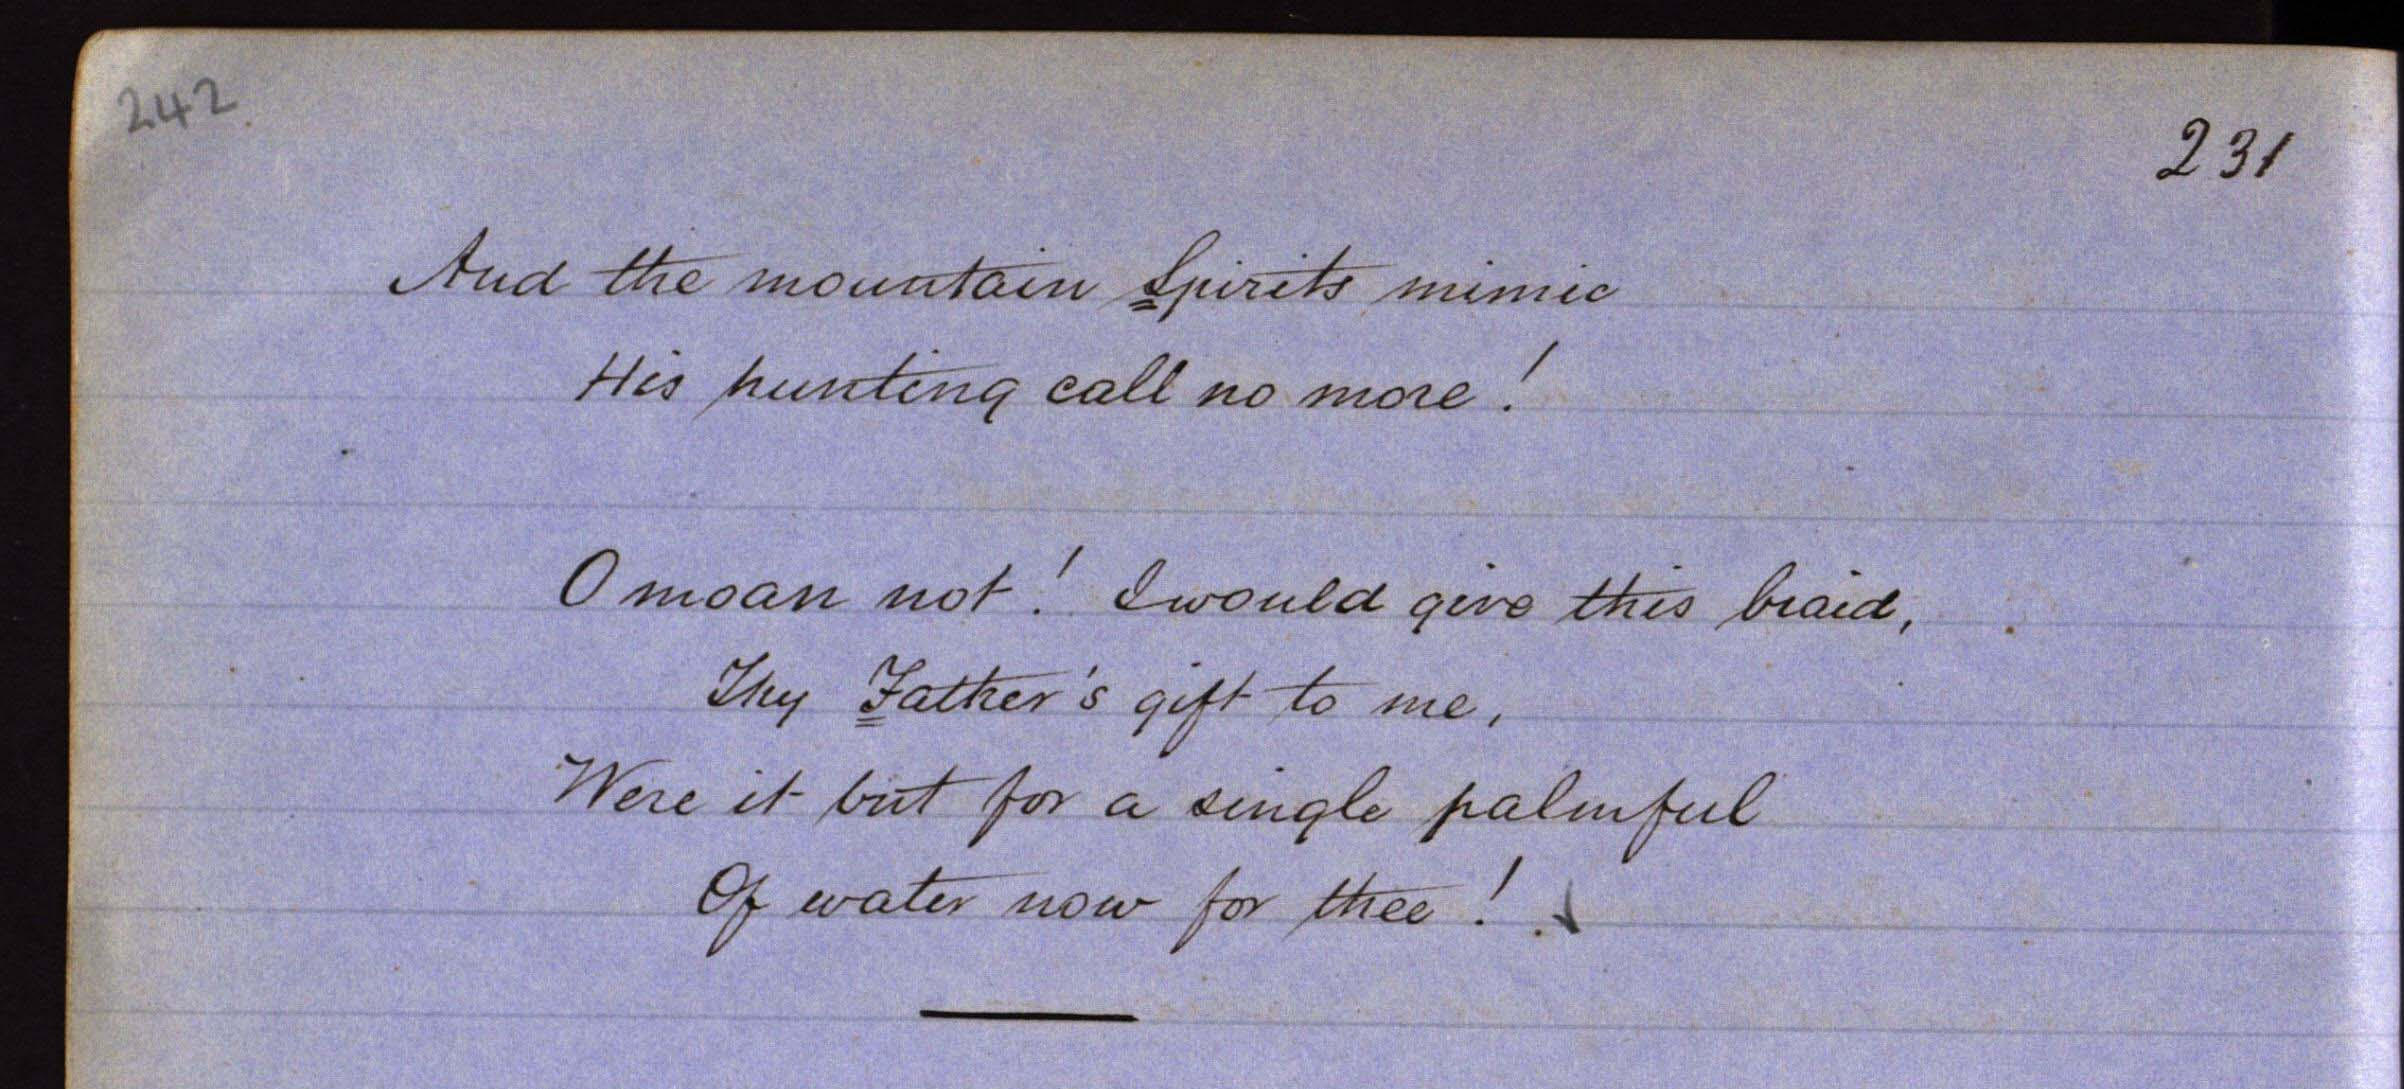 242
231
And the mountain Spirits mimic
His hunting call no more!
O moan not! I would give this braid,
Thy Father's gift to me,
Were it but for a single palmful
Of water now for thee!